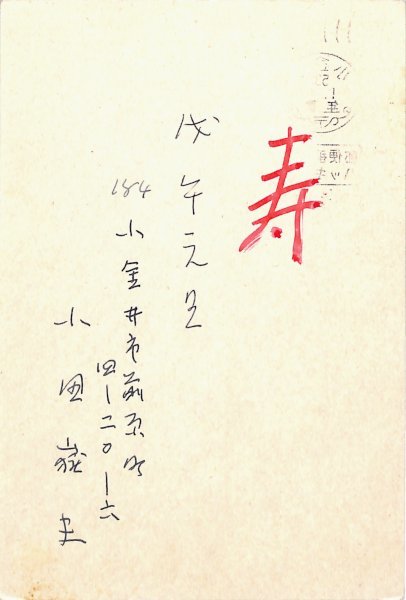 寿
戊午元旦
184
小金井市前原町
四ー二〇ー六
小田嶽夫